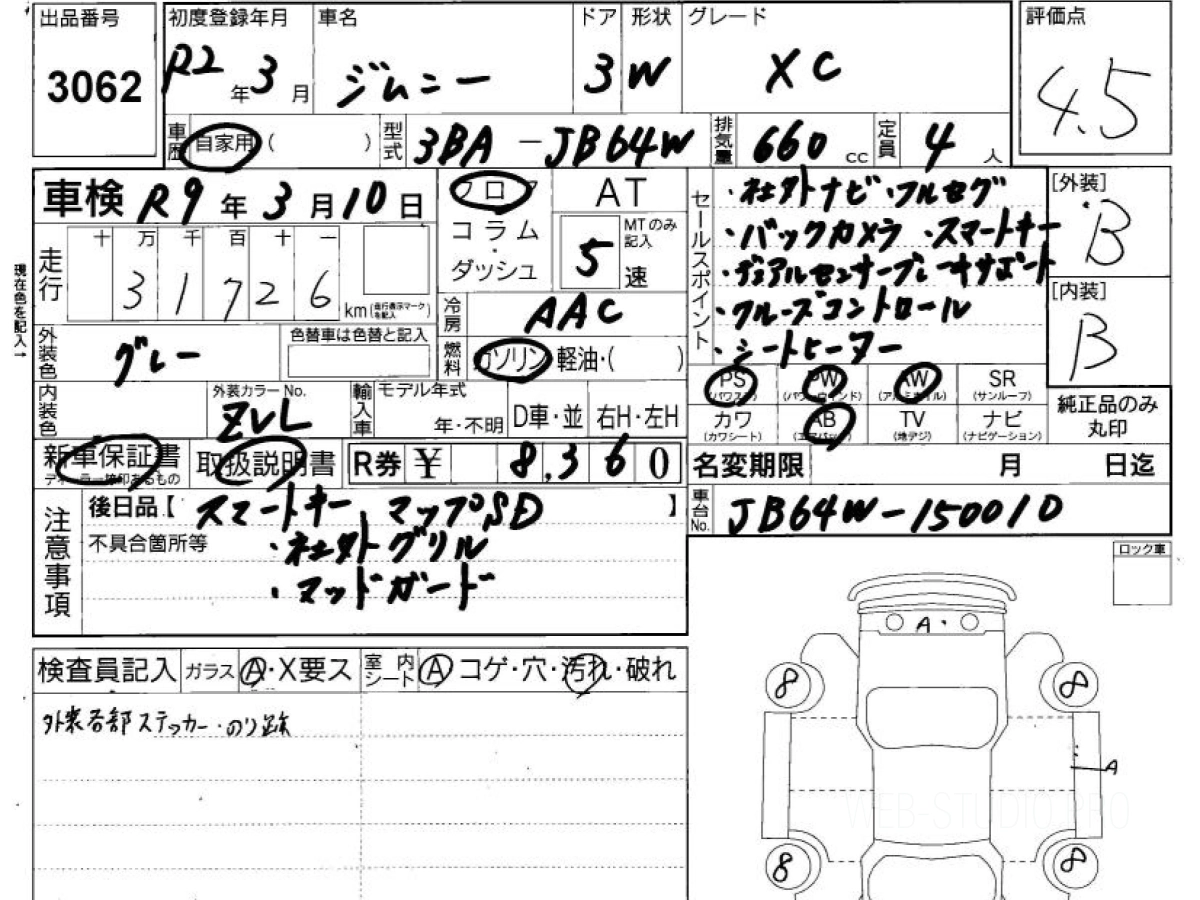 出品番号
3062
初度登録年月
R2年3月
車名
ジムニー
ドア
3
形状
W
グレード
XC
評価点
4.5
車歴
自家用( )
型式
3BA-JB64W
排気量
660cc
定員
4人
車検 R9年3月10日
フロア
コラム・ダッシュ
AT
MTのみ記入
5速
セールスポイント
・社外ナビ・フルセグ
・バックカメラ ・スマートキー
・デュアルセンサーブレーキサポート
・クルーズコントロール
・シートヒーター
[外装]
B
[内装]
B
現在色を記入→
走行
十 万 千 百 十 一
3 1 7 2 6
km(走行表示マークを記入)
冷房
AAC
燃料
ガソリン・軽油・( )
外装色
グレー
色替車は色替と記入
内装色
外装カラーNo.
ZVL
輸入車
モデル年式
年・不明
D車・並
右H・左H
PS
(パワステ)
PW
(パワーウインド)
AW
(アルミホイル)
SR
(サンルーフ)
カワ
(カワシート)
AB
(エアバック)
TV
(地デジ)
ナビ
(ナビゲーション)
純正品のみ
丸印
新車保証書
ディーラー捺印あるもの
取扱説明書
R券 ¥ 8,360
名変期限 月 日迄
注意事項
後日品【スマートキー、マップSD】
不具合箇所等
・社外グリル
・マッドガード
車台No.
JB64W-150010
ロック車
検査員記入
ガラス
A・X要ス
室内シート
A コゲ・穴・汚れ・破れ
外装各部ステッカー・のり跡
A・
8
8
A
8
8
WEB-STUDIO.PRO